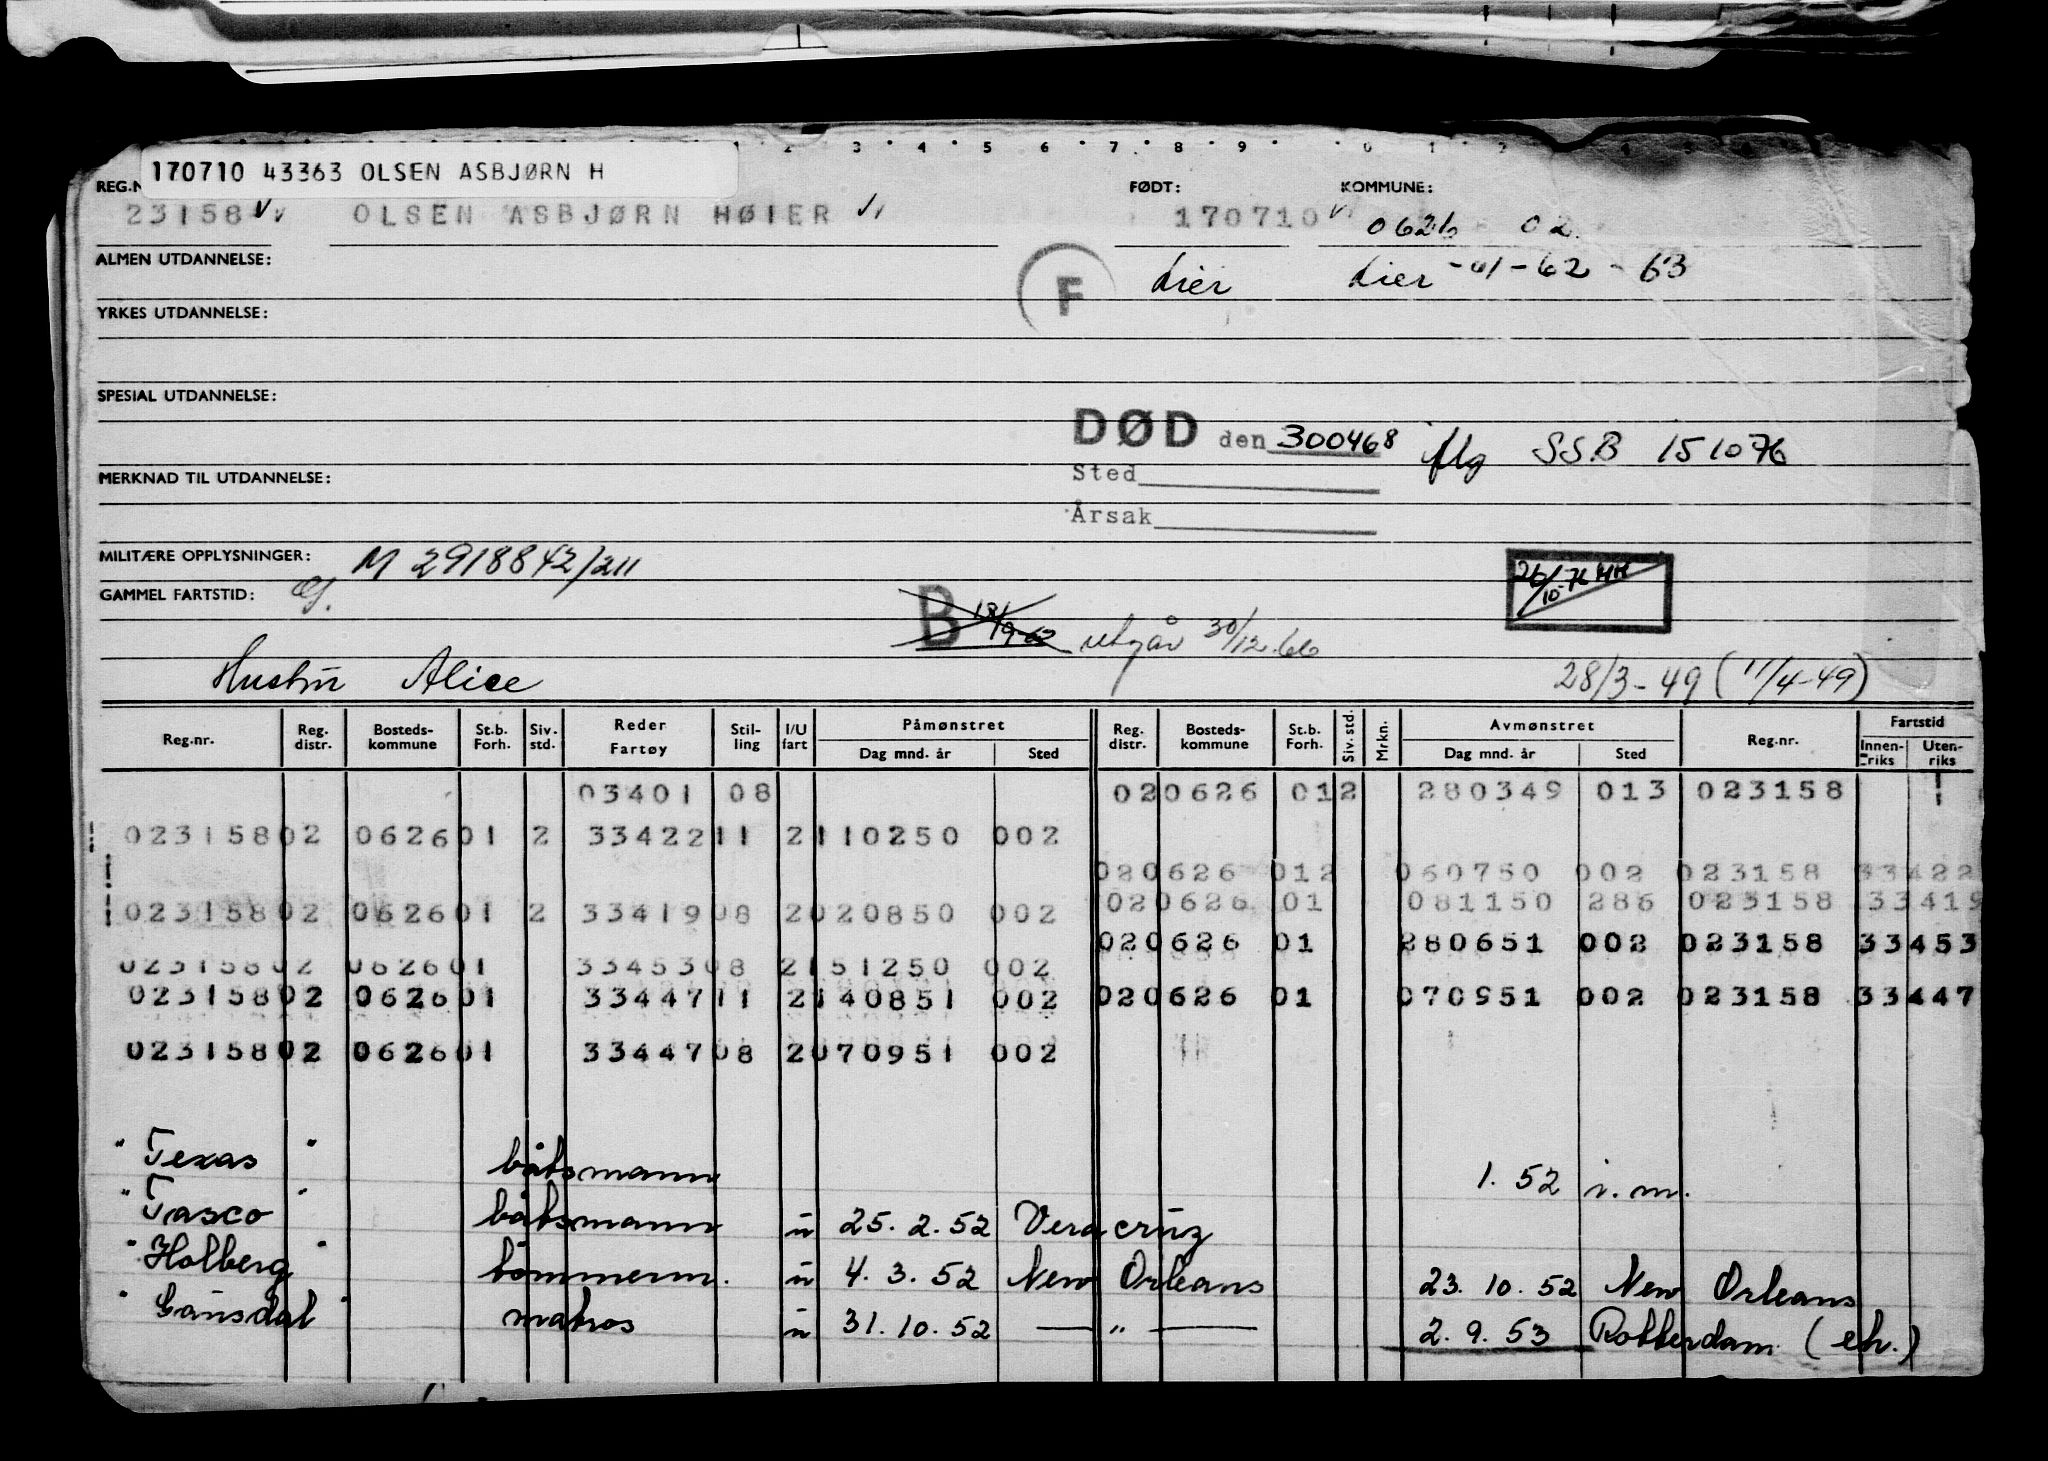 2 3 4 5 6 7 8 9 0 1 2
170710 43363 OLSEN ASBJØRN H
REG.N FØDT: KOMMUNE:
23158 OLSEN ASBJØRN HØIER 170710 0626 02
ALMEN UTDANNELSE: F Lier Lier -61-62-63
YRKES UTDANNELSE:
SPESIAL UTDANNELSE:
DØD den 300468 flg SSB 151076
MERKNAD TIL UTDANNELSE: Sted
Årsak
MILITÆRE OPPLYSNINGER: M 2918842/211
GAMMEL FARTSTID:
26/10-76 HH
B utgår 30/12.66
Hustru Alice 28/3-49 (11/4-49)
Reg.nr. Reg. distr. Bosteds-kommune St.b. Forh. Siv. std. Reder Fartøy Stil-ling I/U fart Påmønstret Dag mnd. år Sted Reg. distr. Bosteds-kommune St.b. Forh. Siv. std. Mrkn. Avmønstret Dag mnd. år Sted Reg.nr. Fartstid Innen-riks Uten-riks
03401 08 020626 012 280349 013 023158
02315802 062601 2 33422 11 2 110250 002
020626 012 060750 002 023158 33422
02315802 062601 2 33419 08 2 020850 002 020626 01 081150 286 023158 33419
020626 01 280651 002 023158 33453
02315802 062601 33453 08 2 151250 002
02315802 062601 33447 11 2 140851 002 020626 01 070951 002 023158 33447
02315802 062601 33447 08 2 070951 002
" Texas " båtsmann 1. 52 i.m.
" Tasco " båtsmann u 25. 2. 52 Vera cruz
" Holberg " tømmerm. u 4. 3. 52 New Orleans 23. 10. 52 New Orleans
" Gausdal " matros u 31. 10. 52 — " — 2. 9. 53 Rotterdam (eh.)